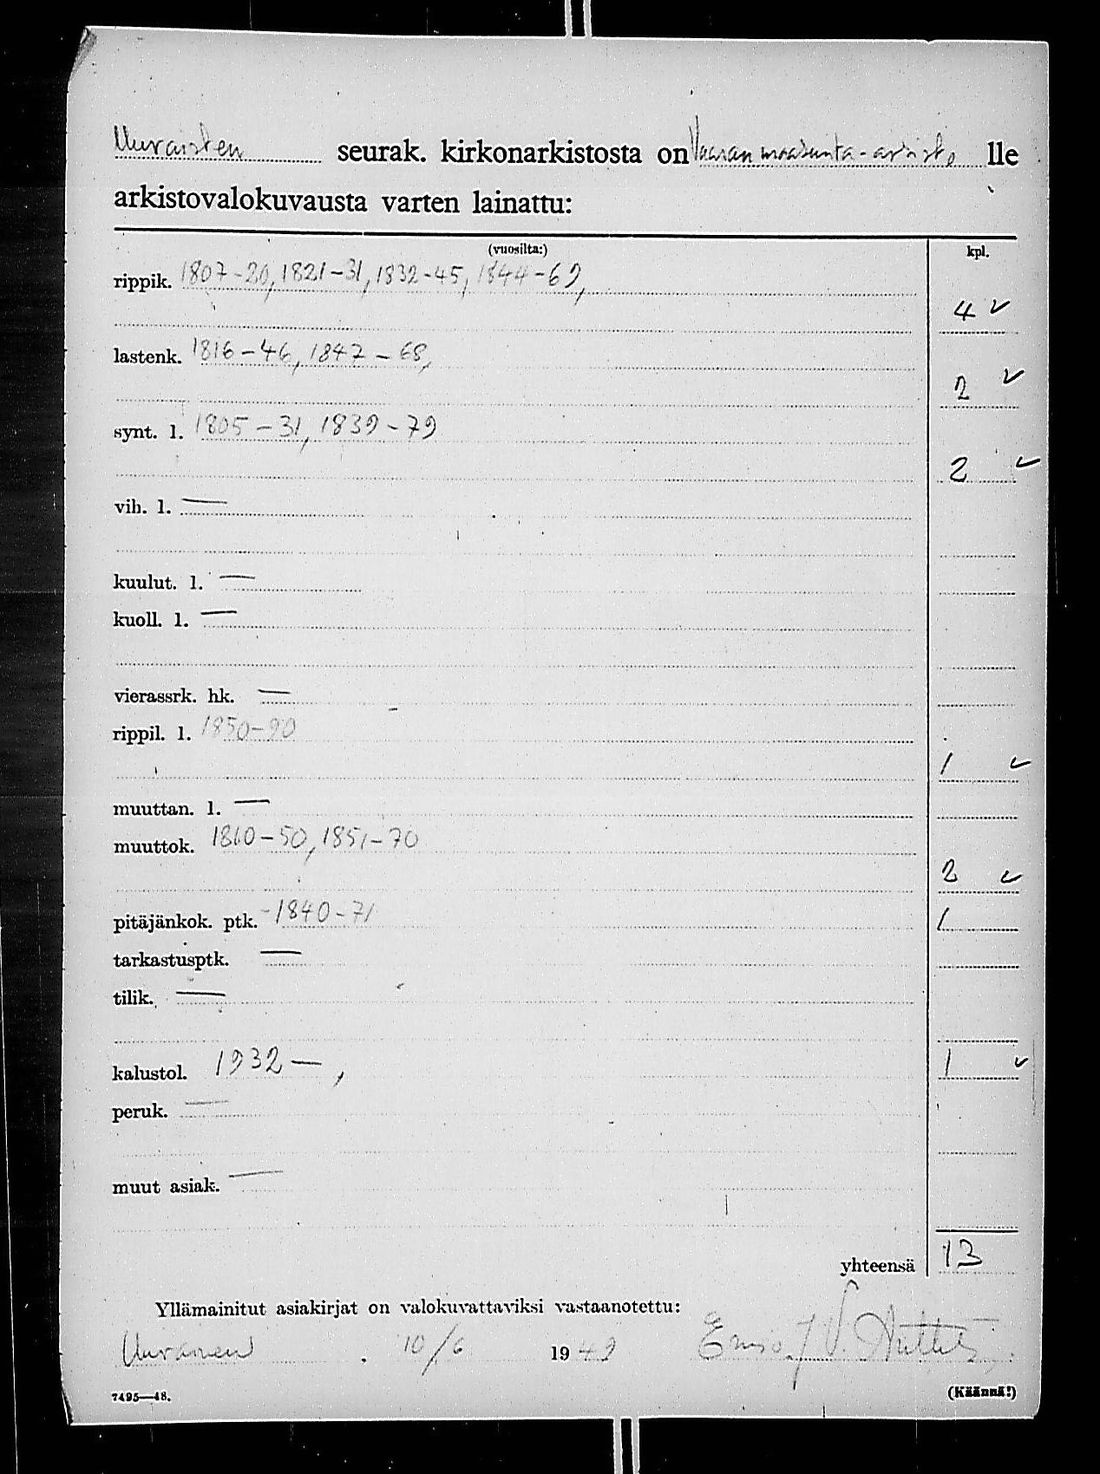 Uuraisten seurak. kirkonarkistosta on Vaasan maakunta-arkisto lle
arkistovalokuvausta varten lainattu:
(vuosilta:) kpl.
rippik. 1807-20, 1821-31, 1832-45, 1844-69,
4 ✓
lastenk. 1816-46, 1847-68,
2 ✓
synt. l. 1805-31, 1839-79
2 ✓
vih. l. —
kuulut. l. —
kuoll. l. —
vierassrk. hk. —
rippil. l. 1850-90
1 ✓
muuttan. l. —
muuttok. 1810-50, 1851-70
2 ✓
pitäjänkok. ptk. -1840-71 1
tarkastusptk. —
tilik. —
kalustol. 1932 — , 1 ✓
peruk. —
muut asiak. —
yhteensä 13
Yllämainitut asiakirjat on valokuvattaviksi vastaanotettu:
Uurainen . 10/6 1949
7495—48. (Käännä!)